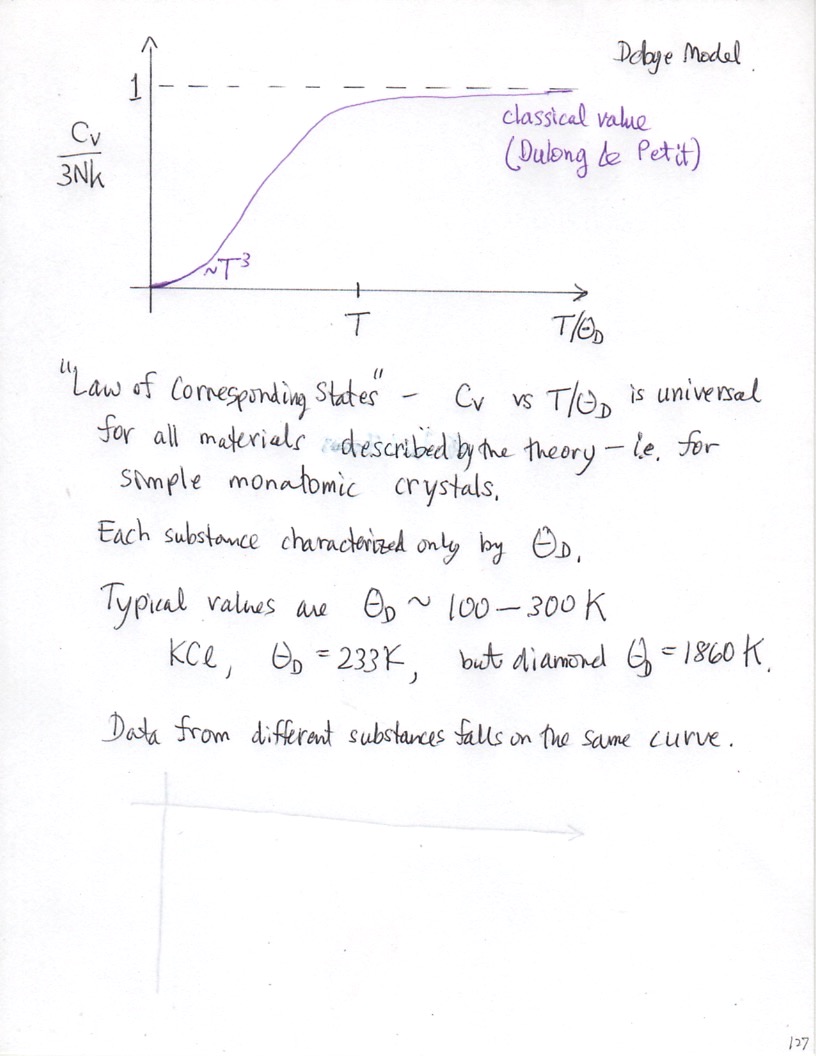 Debye Model.
1
Cv
3Nk
classical value
(Dulong & Petit)
~T³
T
T/ΘD
"Law of Corresponding States" – Cv vs T/ΘD is universal
for all materials described by the theory – i.e. for
simple monatomic crystals.
Each substance characterized only by ΘD.
Typical values are ΘD ~ 100 – 300 K
KCl, ΘD = 233K, but diamond ΘD = 1860 K.
Data from different substances falls on the same curve.
127